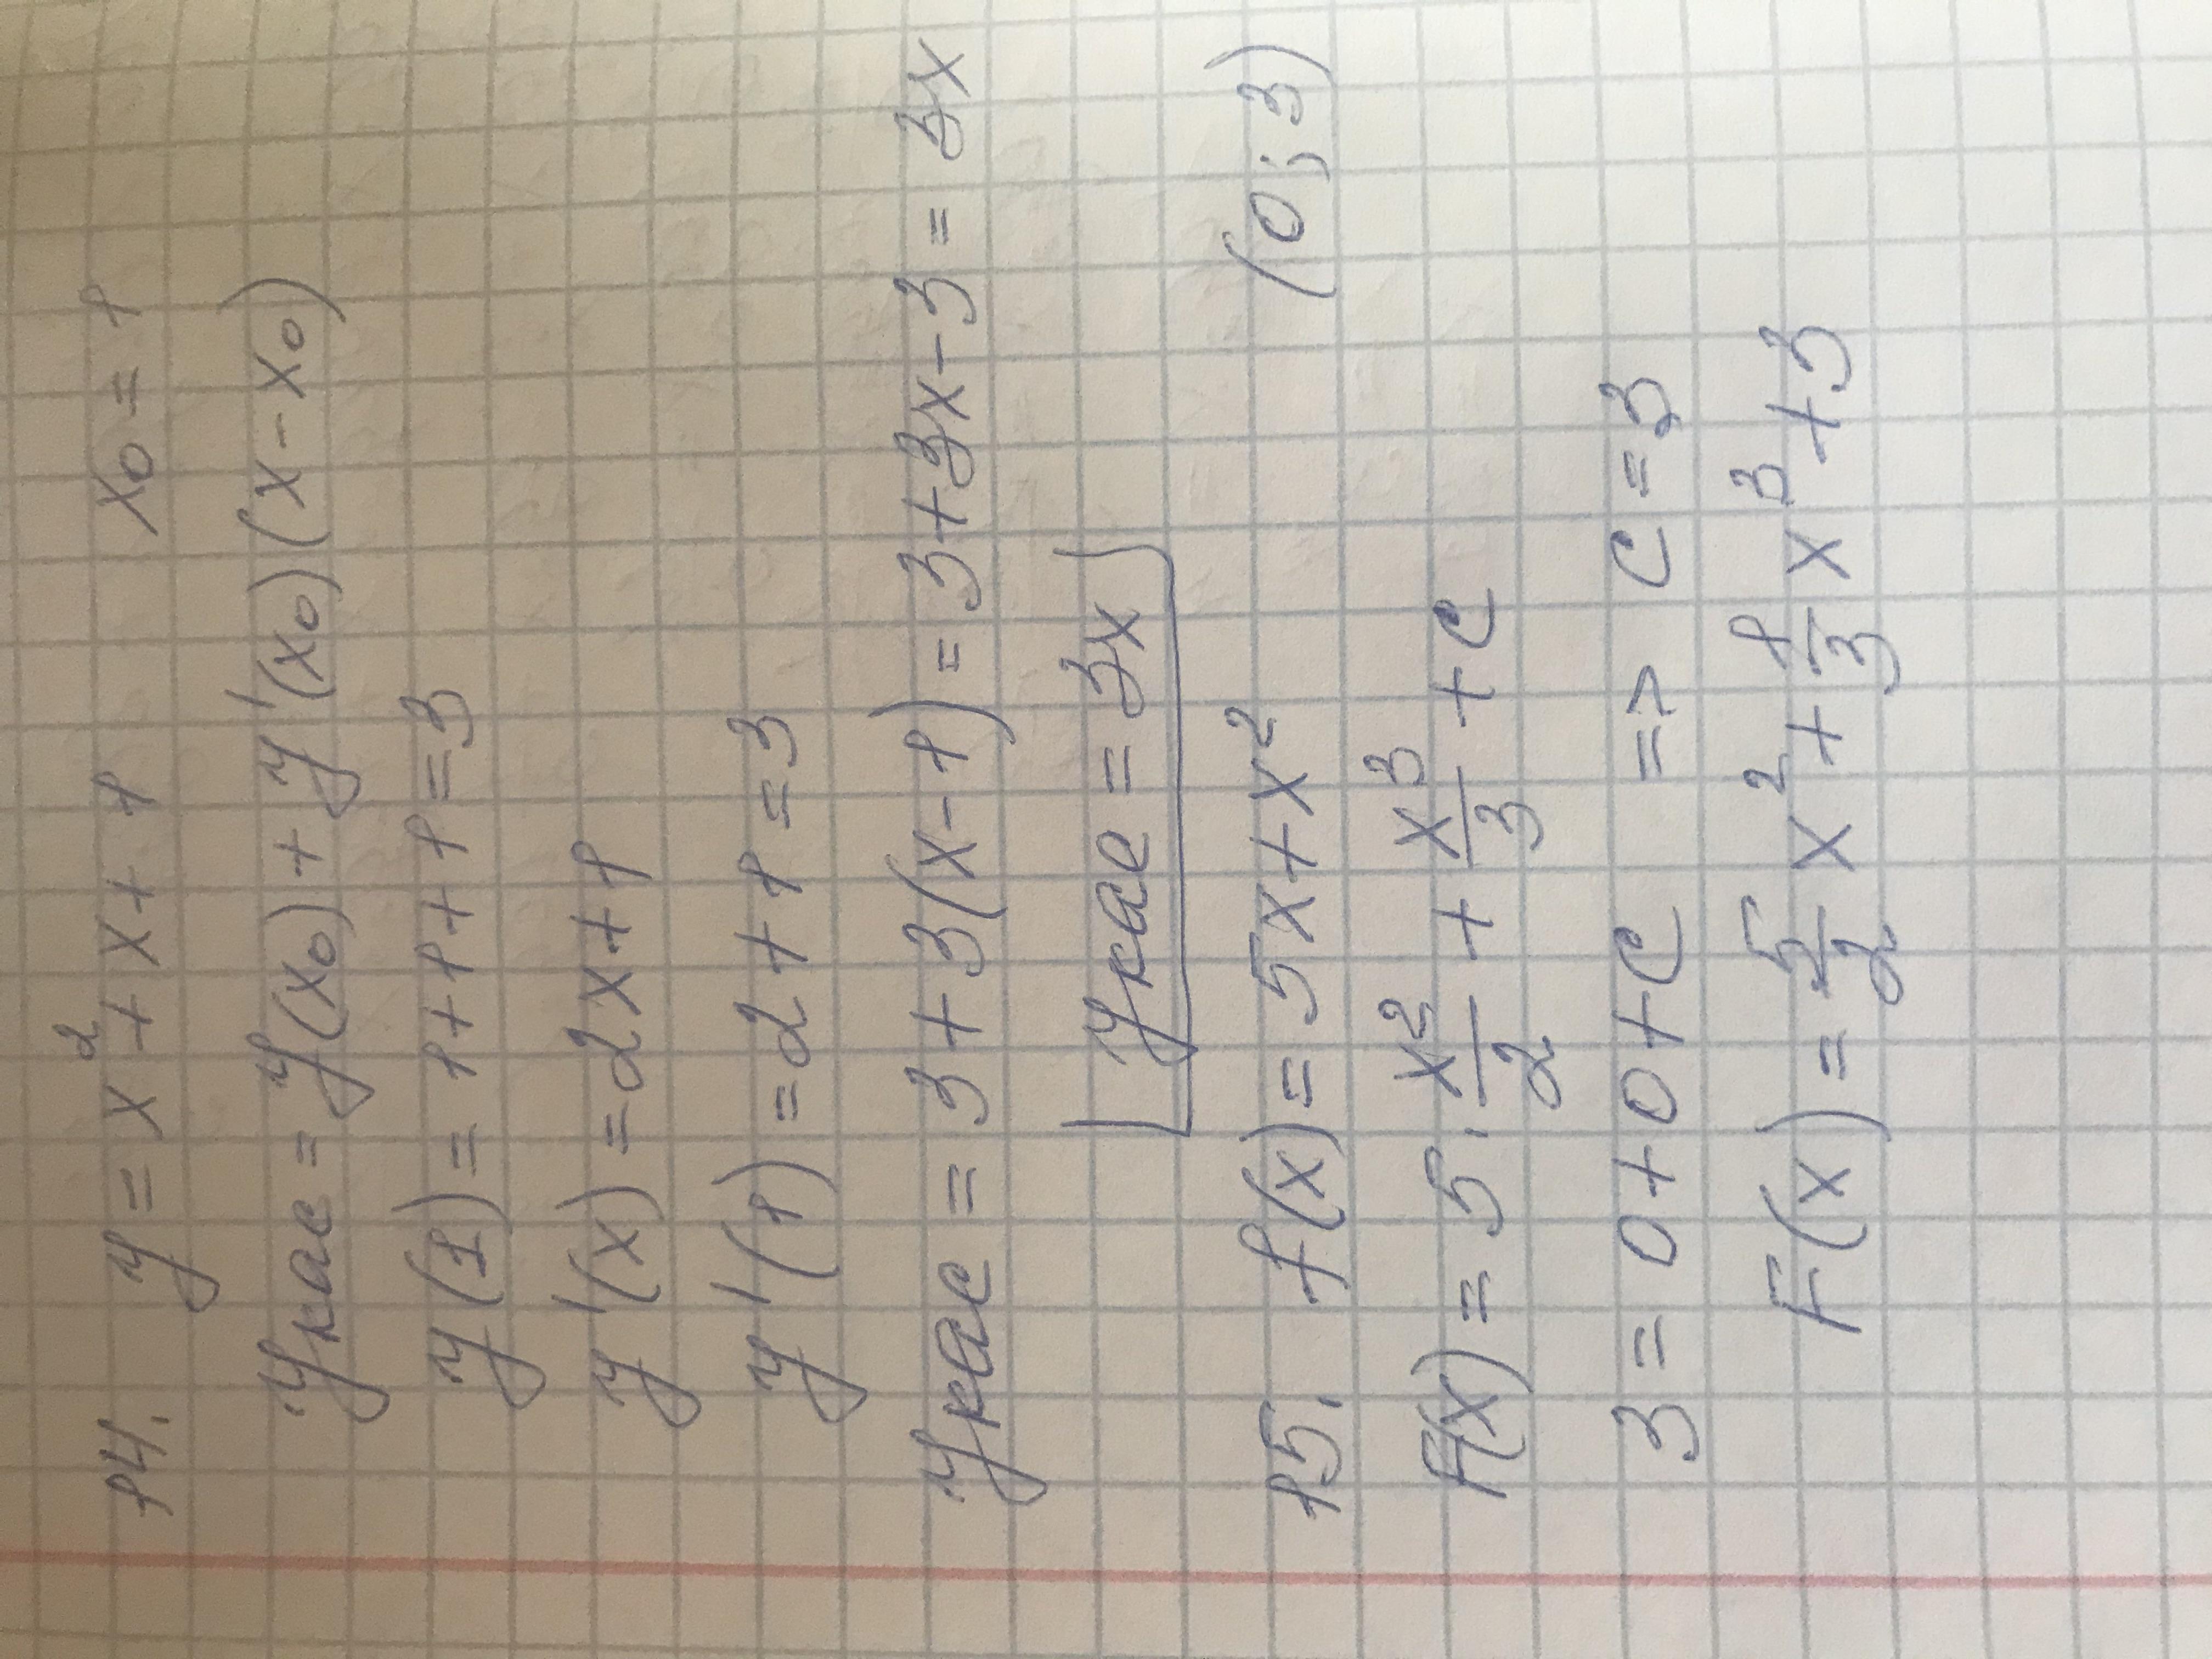 14. y = x² + x + 1 x₀ = 1
yкас = y(x₀) + y'(x₀)(x - x₀)
y(1) = 1 + 1 + 1 = 3
y'(x) = 2x + 1
y'(1) = 2 + 1 = 3
yкас = 3 + 3(x - 1) = 3 + 3x - 3 = 3x
yкас = 3x
15. f(x) = 5x + x² (0; 3)
F(x) = 5 · x²/2 + x³/3 + c
3 = 0 + 0 + C => C = 3
F(x) = 5/2 x² + 1/3 x³ + 3